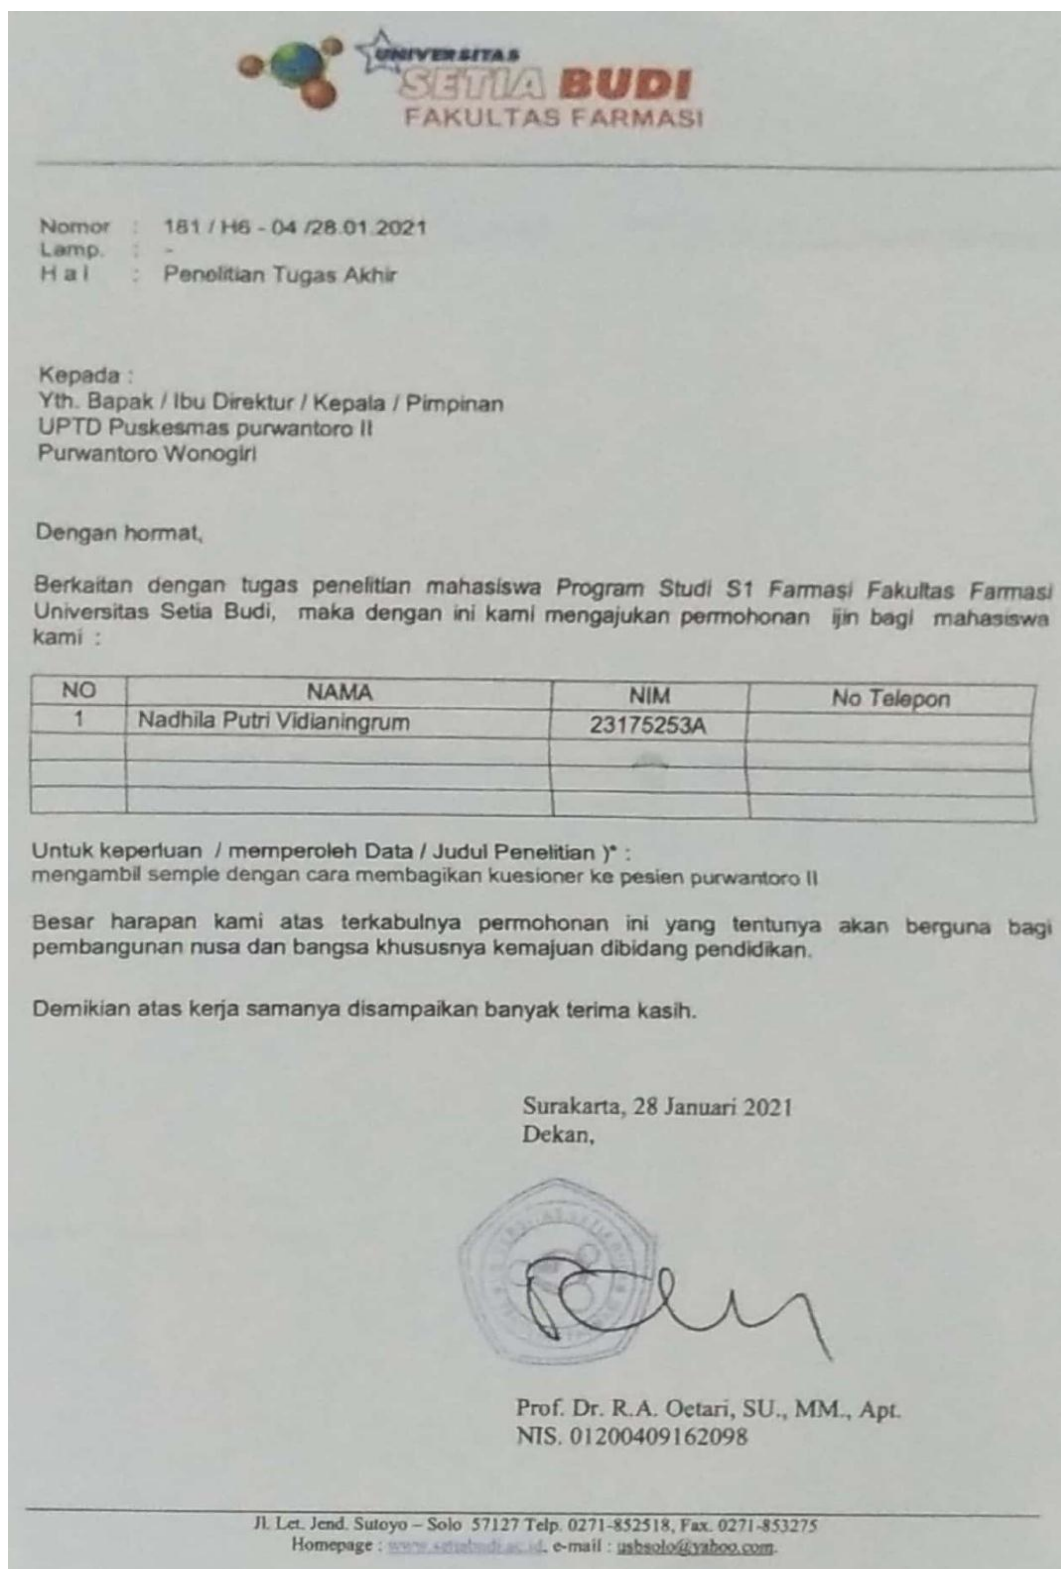 UNIVERSITAS
SETIA BUDI
FAKULTAS FARMASI
Nomor : 181 / H6 - 04 /28.01.2021
Lamp. : -
H a l : Penelitian Tugas Akhir
Kepada :
Yth. Bapak / Ibu Direktur / Kepala / Pimpinan
UPTD Puskesmas purwantoro II
Purwantoro Wonogiri
Dengan hormat,
Berkaitan dengan tugas penelitian mahasiswa Program Studi S1 Farmasi Fakultas Farmasi
Universitas Setia Budi, maka dengan ini kami mengajukan permohonan ijin bagi mahasiswa
kami :
NO NAMA NIM No Telepon
1 Nadhila Putri Vidianingrum 23175253A
Untuk keperluan / memperoleh Data / Judul Penelitian )* :
mengambil semple dengan cara membagikan kuesioner ke pesien purwantoro II
Besar harapan kami atas terkabulnya permohonan ini yang tentunya akan berguna bagi
pembangunan nusa dan bangsa khususnya kemajuan dibidang pendidikan.
Demikian atas kerja samanya disampaikan banyak terima kasih.
Surakarta, 28 Januari 2021
Dekan,
Prof. Dr. R.A. Oetari, SU., MM., Apt.
NIS. 01200409162098
Jl. Let. Jend. Sutoyo – Solo 57127 Telp. 0271-852518, Fax. 0271-853275
Homepage : www.setiabudi.ac.id, e-mail : usbsolo@yahoo.com.